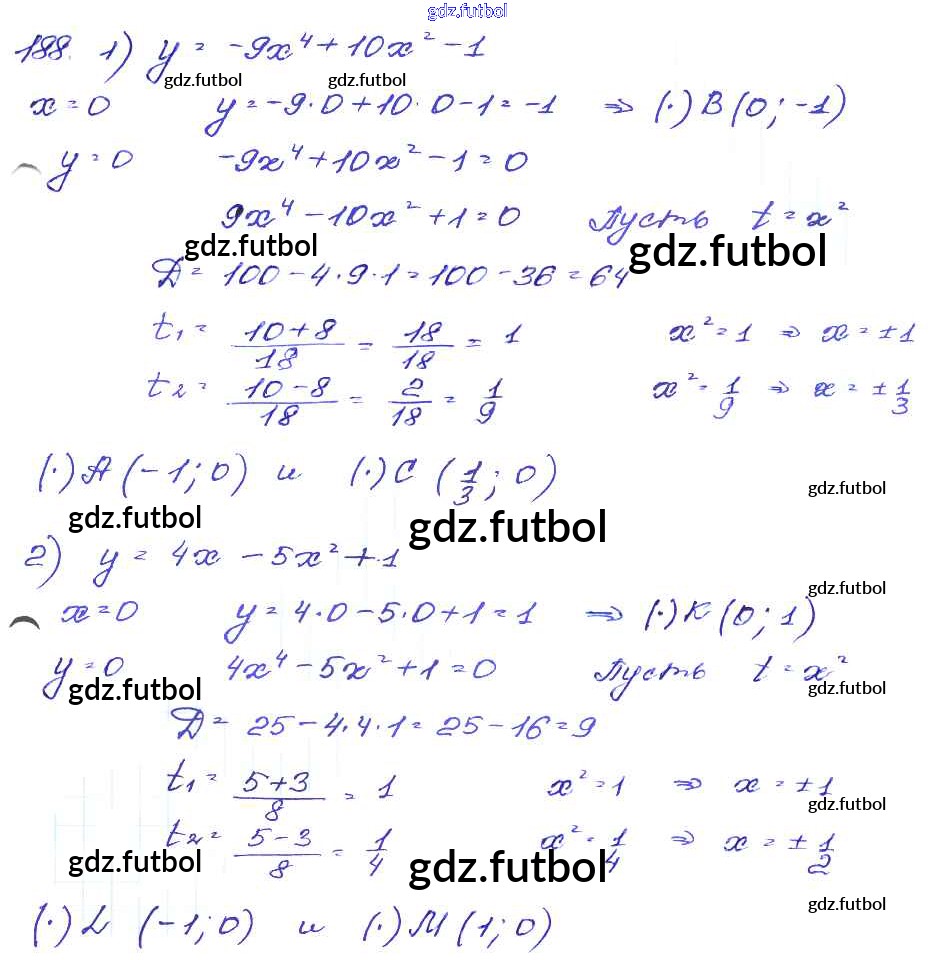 gdz.futbol
188. 1) y = -9x⁴ + 10x² - 1
gdz.futbol gdz.futbol
x = 0 y = -9·0 + 10·0 - 1 = -1 ⇒ (·) B (0; -1)
y = 0 -9x⁴ + 10x² - 1 = 0
9x⁴ - 10x² + 1 = 0 Пусть t = x²
gdz.futbol gdz.futbol
D = 100 - 4·9·1 = 100 - 36 = 64
t₁ = (10+8)/18 = 18/18 = 1 x² = 1 ⇒ x = ±1
t₂ = (10-8)/18 = 2/18 = 1/9 x² = 1/9 ⇒ x = ±1/3
(·) A (-1; 0) и (·) C (1/3; 0)
gdz.futbol
gdz.futbol gdz.futbol
2) y = 4x - 5x² + 1
gdz.futbol
x = 0 y = 4·0 - 5·0 + 1 = 1 ⇒ (·) K (0; 1)
y = 0 4x⁴ - 5x² + 1 = 0 Пусть t = x²
gdz.futbol gdz.futbol gdz.futbol
D = 25 - 4·4·1 = 25 - 16 = 9
t₁ = (5+3)/8 = 1 x² = 1 ⇒ x = ±1
gdz.futbol
t₂ = (5-3)/8 = 1/4 x² = 1/4 ⇒ x = ±1/2
gdz.futbol gdz.futbol
gdz.futbol
(·) L (-1; 0) и (·) M (1; 0)